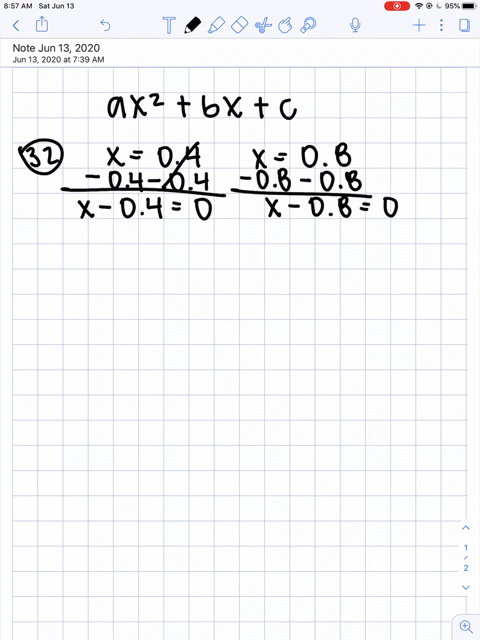 8:57 AM Sat Jun 13
95%
Note Jun 13, 2020
Jun 13, 2020 at 7:39 AM
ax² + bx + c
32
x = 0.4 x = 0.8
-0.4 -0.4 -0.8 -0.8
x - 0.4 = 0 x - 0.8 = 0
1
/
2